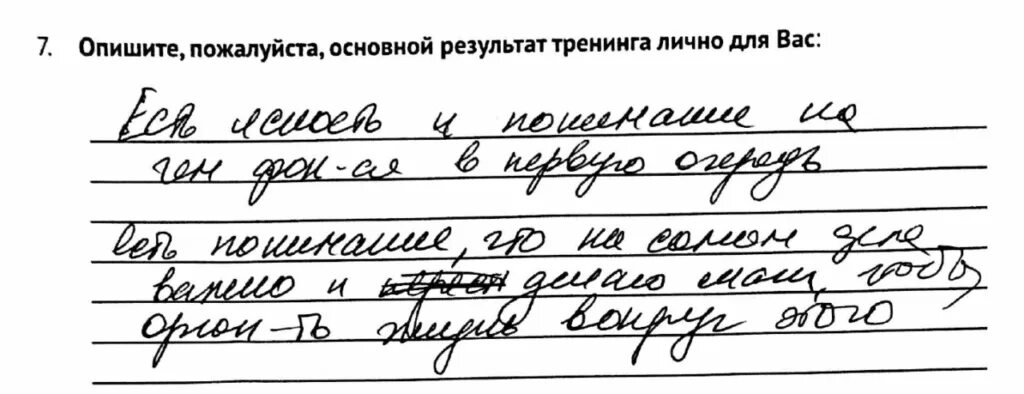 7. Опишите, пожалуйста, основной результат тренинга лично для Вас:
Есть ясность и понимание на
чем фок-ся в первую очередь
Есть понимание, что на самом деле
важно и делаю шаги, чтобы
орган-ть жизнь вокруг этого